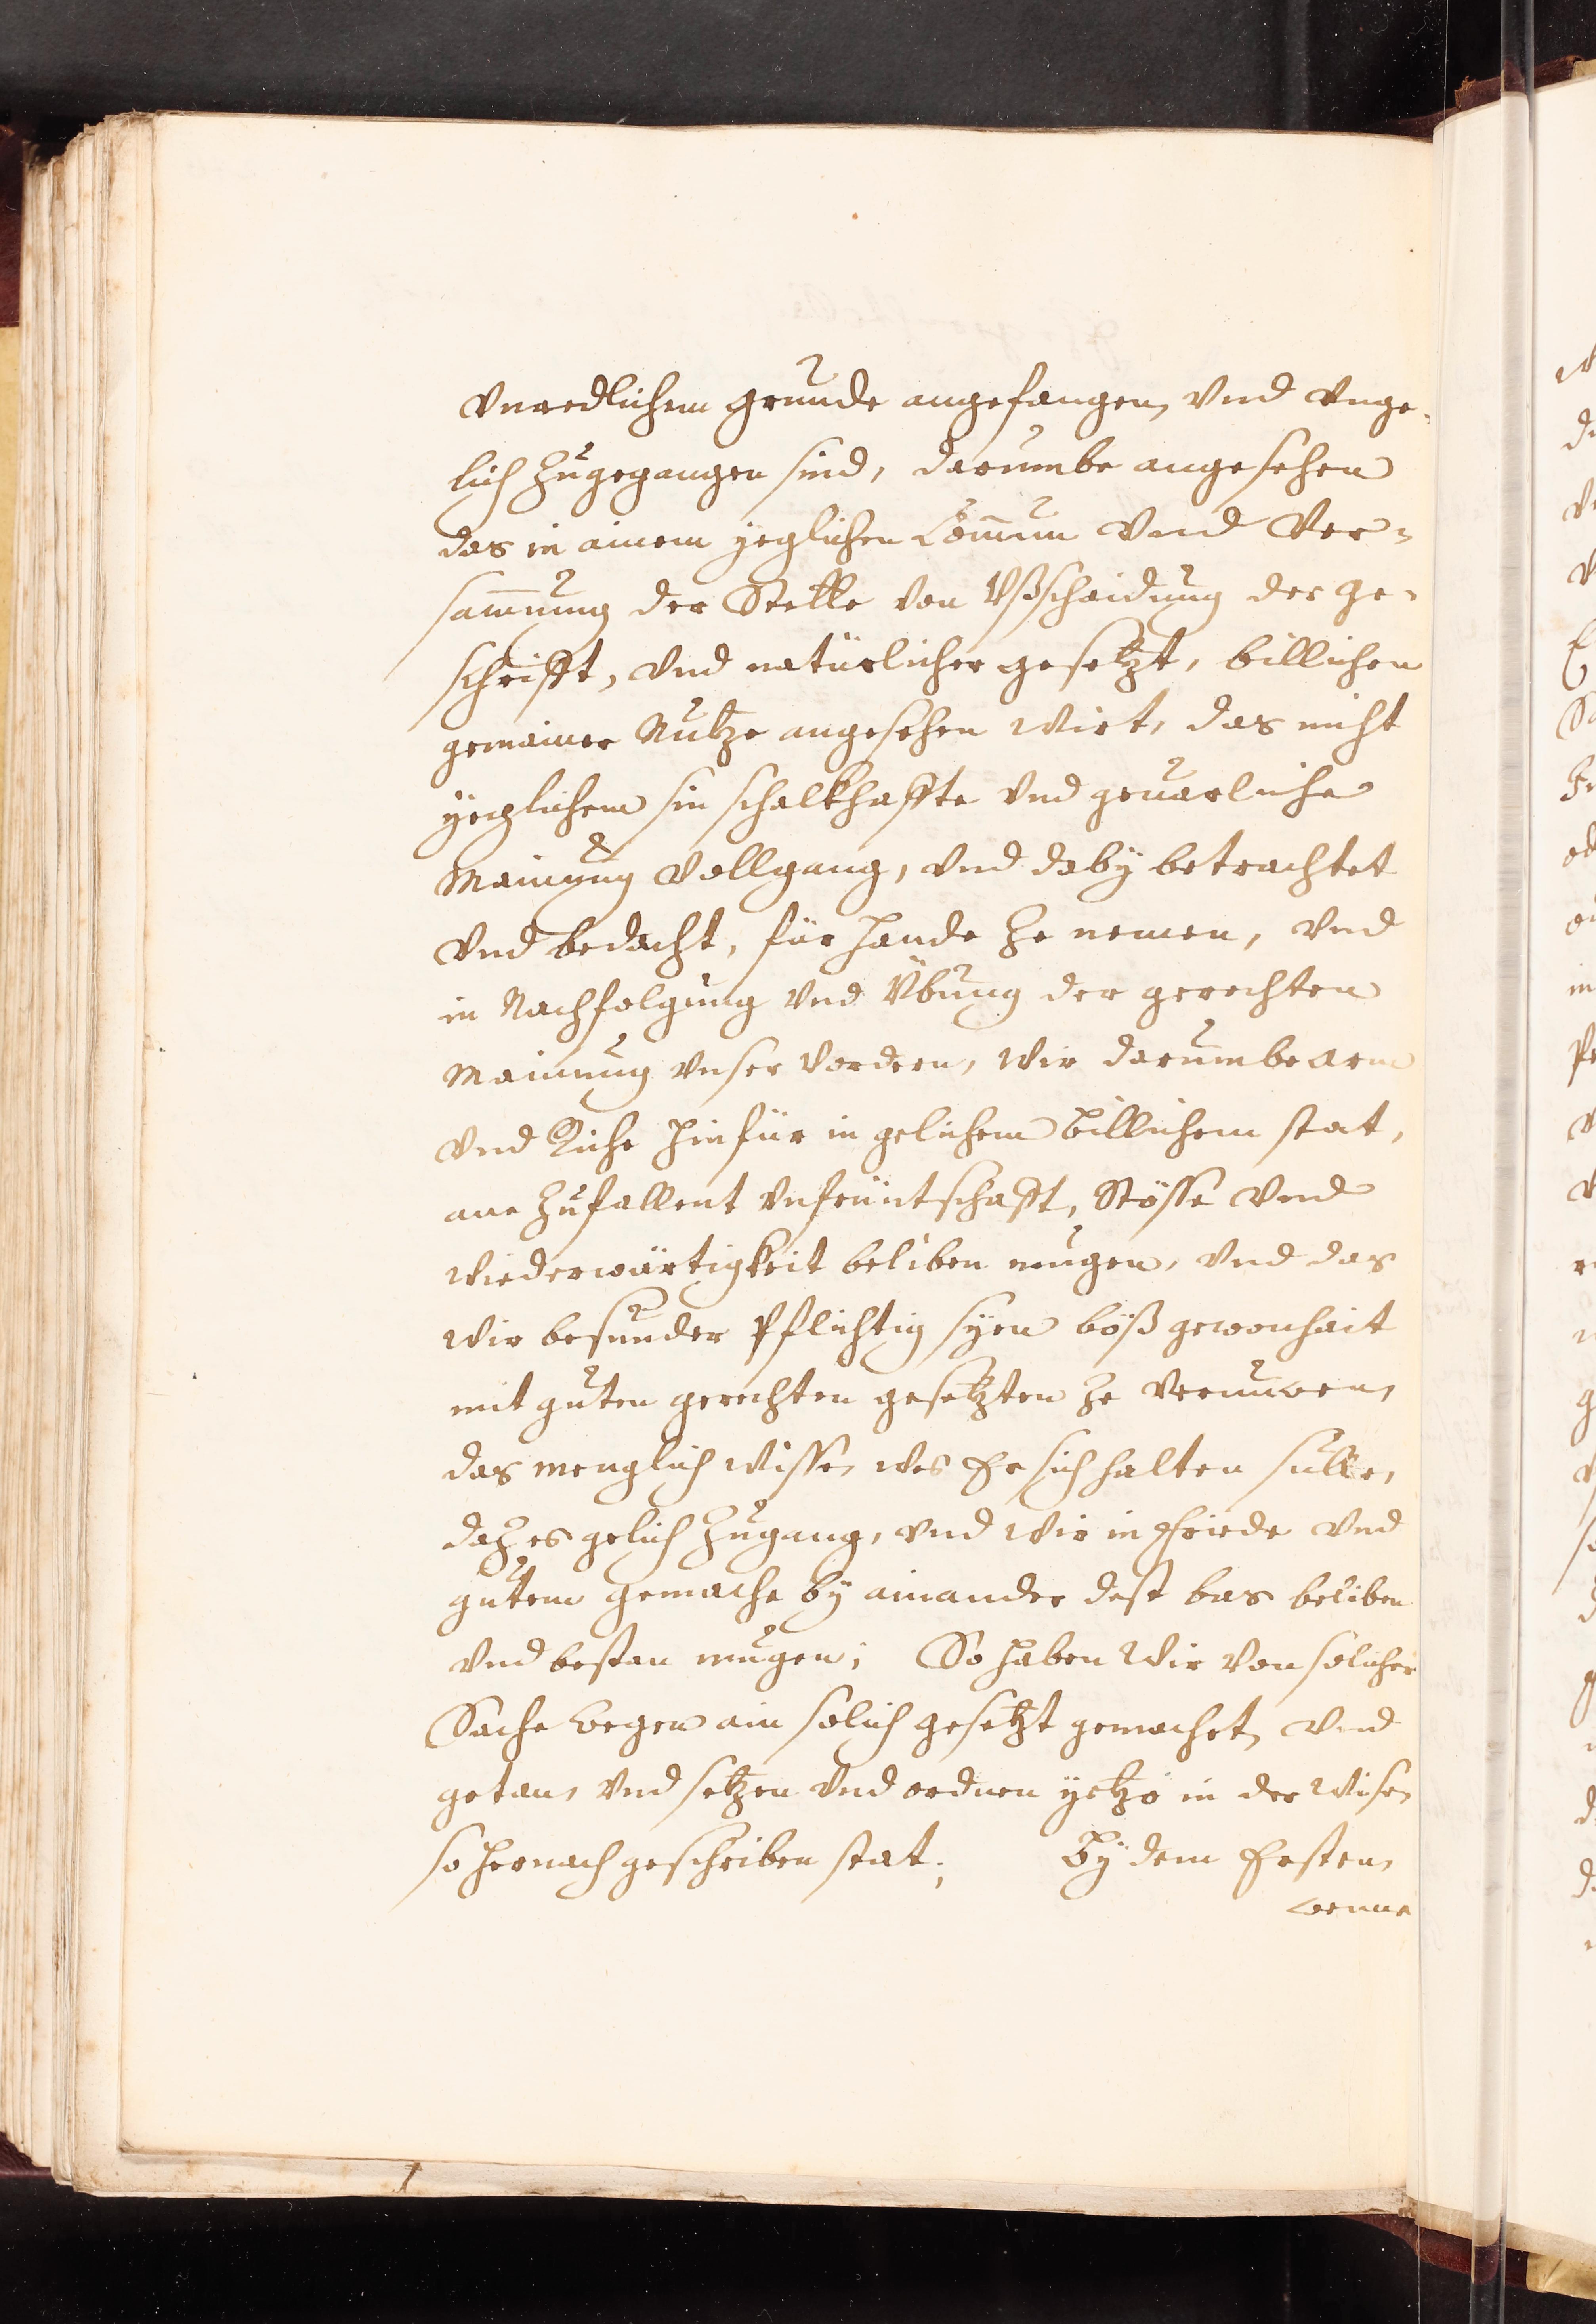 vnredlichem grunde angefangen, vnd vnge-
lich zugegangen sind, darumbe angesehen
das in ainem yeglichen Comun vnd Ver-
samnung der Stette von Vßschaidung der ge-
schrifft, vnd natürlicher gesetzt, billichen
gemainer Nutze angesehen wirt, das nicht
yeglichem sin schalkhaffte vnd geuarliche
Mainung vollgang, vnd daby betrachtet
vnd bedacht, für hande ze nemen, vnd
in Nachfolgung vnd Übung der gerechten
Mainung vnser vordern, wie darumbe arm
vnd Riche hinfür in gelichem billichem stat,
ane zufallent vnfrüntschafft, Stösse vnd
wiederwärtigkeit beliben mugen, vnd das
wir besunder pflichtig syen böß gewonhait
mit guten gerechten gesetzten ze vernuwen,
das menglich wisse, wes Er sich halten sülle,
daz es gelich zugang, vnd wir in Friede vnd
gutem gemache by ainander dest bas beliben
vnd bestan mugen; So haben Wir von solicher
Sache wegen ain solich gesetzt gemachet, vnd
getan, vnd setzen vnd ordnen yetzo in der wise,
so hernach geschriben stat; By dem Ersten,
wenne